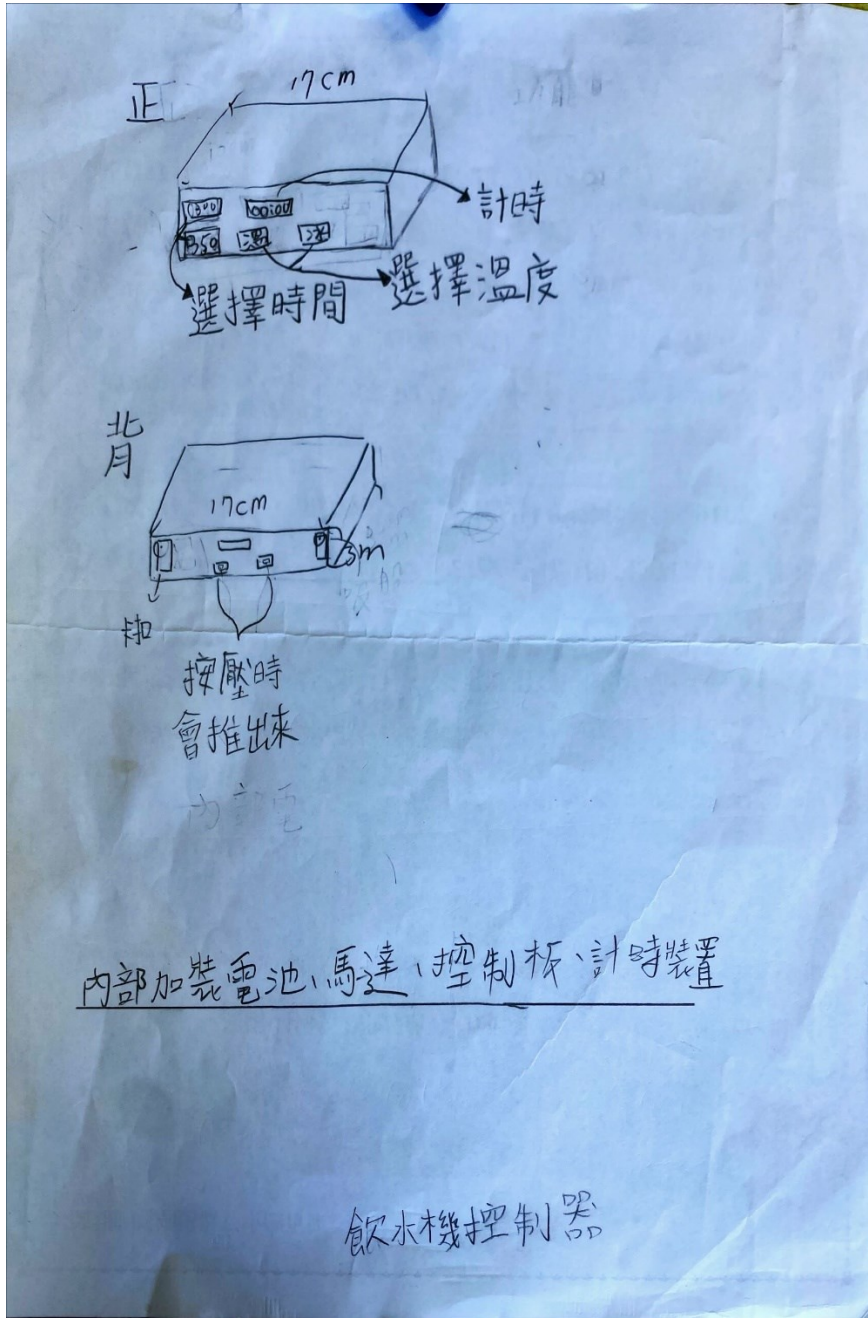 正
17cm
00:00
計時
350
溫
冰
選擇時間
選擇溫度
背
17cm
卡扣
按壓時
會推出來
內部加裝電池、馬達、控制板、計時裝置
飲水機控制器